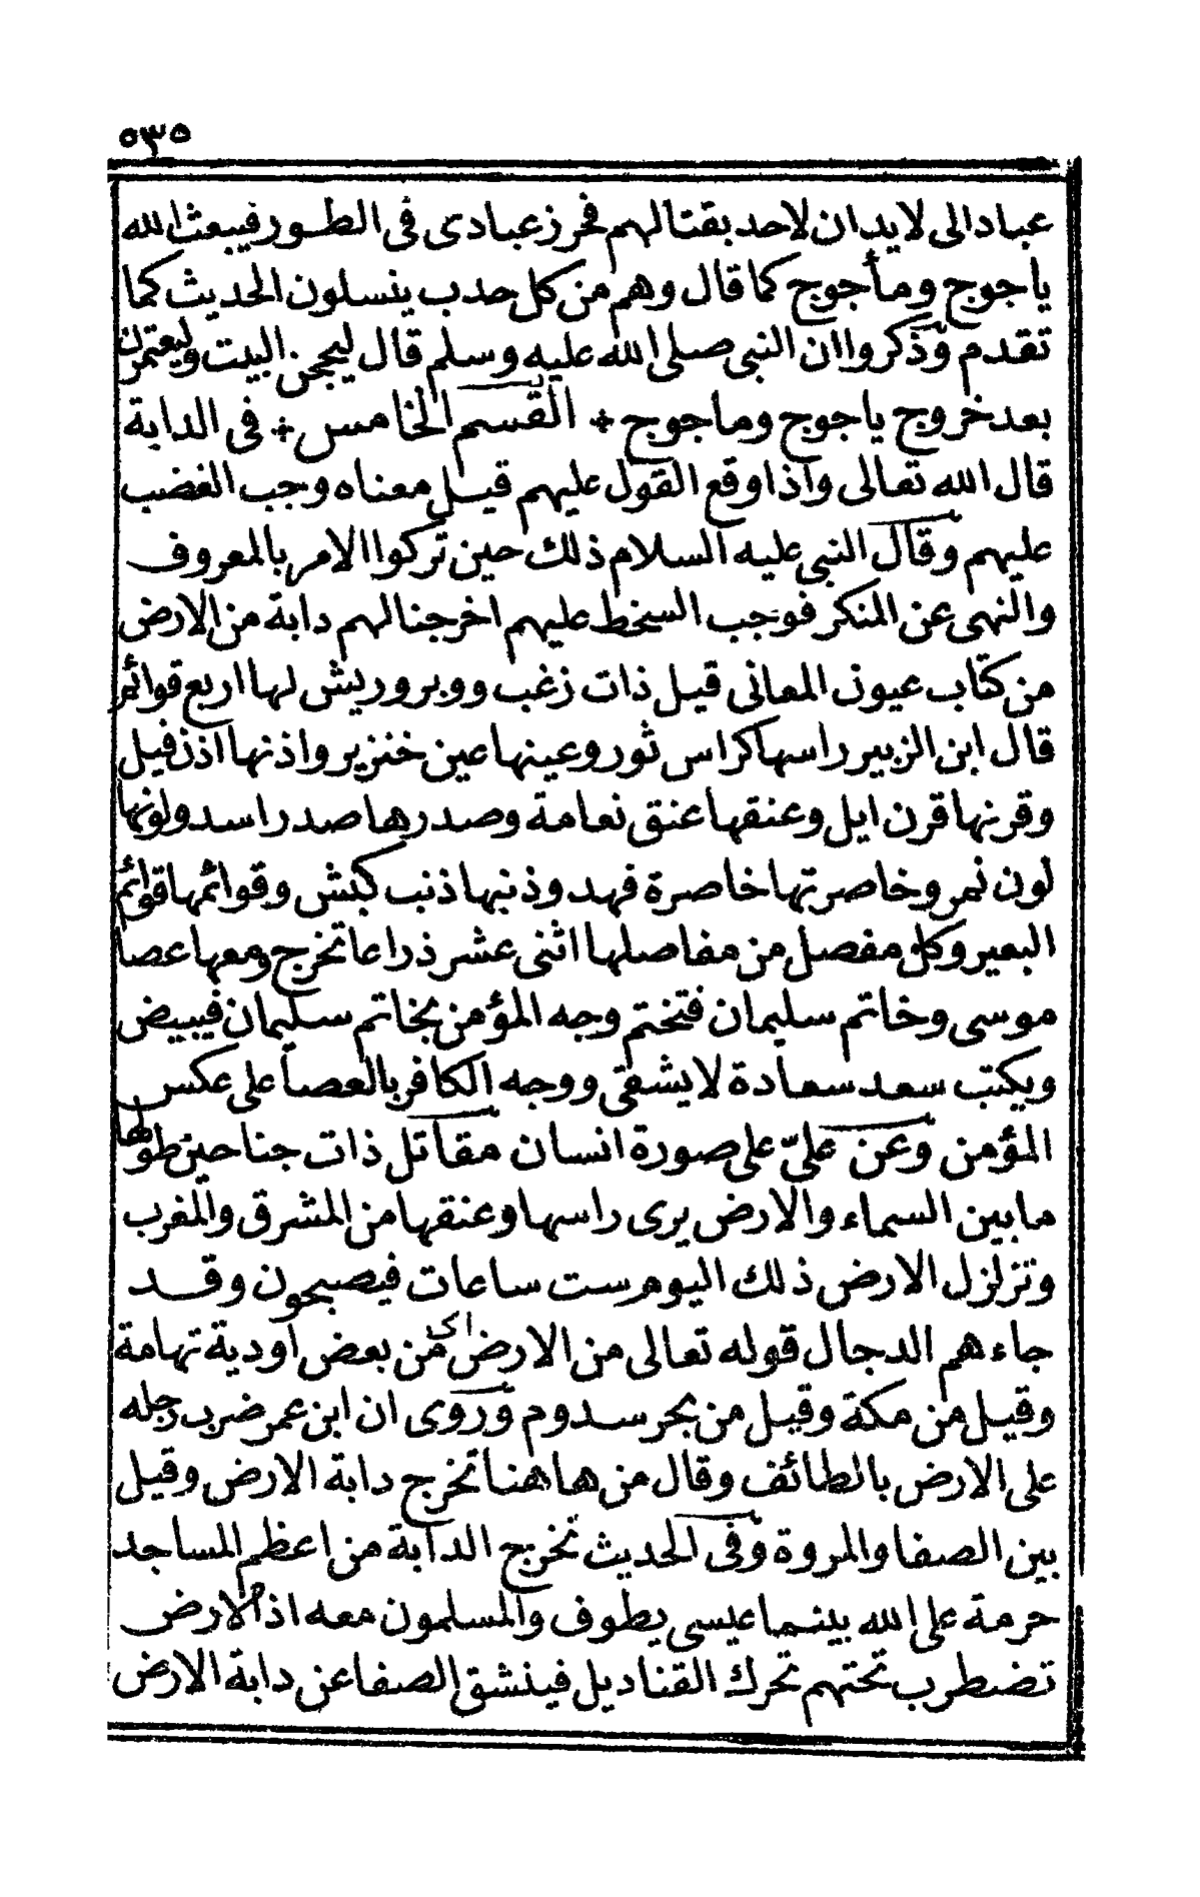 ٥٣٥
عبادا لى لا يدان لاحد بقتالهم فحرز عبادى فى الطور فيبعث الله
ياجوج ومأجوج كما قال وهم من كل حدب ينسلون الحديث كما
تقدم وذكروا ان النبى صلى الله عليه وسلم قال ليحجن البيت وليعتمرن
بعد خروج ياجوج وماجوج ÷ القسم الخامس ÷ فى الدابة
قال الله تعالى واذا وقع القول عليهم قيل معناه وجب الغضب
عليهم وقال النبى عليه السلام ذلك حين تركوا الامر بالمعروف
والنهى عن المنكر فوجب السخط عليهم اخرجنا لهم دابة من الارض
من كتاب عيون المعانى قيل ذات زغب ووبر وريش لها اربع قوائم
قال ابن الزبير راسها كراس ثور وعينها عين خنزير واذنها اذن فيل
وقرنها قرن ايل وعنقها عنق نعامة وصدرها صدر اسد ولونها
لون نمر وخاصرتها خاصرة فهد وذنبها ذنب كبش وقوائمها قوائم
البعير وكل مفصل من مفاصلها اثنى عشر ذراعا تخرج ومعها عصا
موسى وخاتم سليمان فتختم وجه المؤمن بخاتم سليمان فيبيض
ويكتب سعد سعادة لا يشقى ووجه الكافر بالعصا على عكس
المؤمن وعن علىّ على صورة انسان مقاتل ذات جناحين طولها
ما بين السماء والارض يرى راسها وعنقها من المشرق والمغرب
وتزلزل الارض ذلك اليوم ست ساعات فيصبحون وقد
جاءهم الدجال قوله تعالى من الارض اى من بعض اودية تهامة
وقيل من مكة وقيل من بحر سدوم وروى ان ابن عمر ضرب رجله
على الارض بالطائف وقال من هاهنا تخرج دابة الارض وقيل
بين الصفا والمروة وفى الحديث تخرج الدابة من اعظم المساجد
حرمة على الله بينما عيسى يطوف والمسلمون معه اذ الارض
تضطرب تحتهم تحرك القناديل فينشق الصفا عن دابة الارض